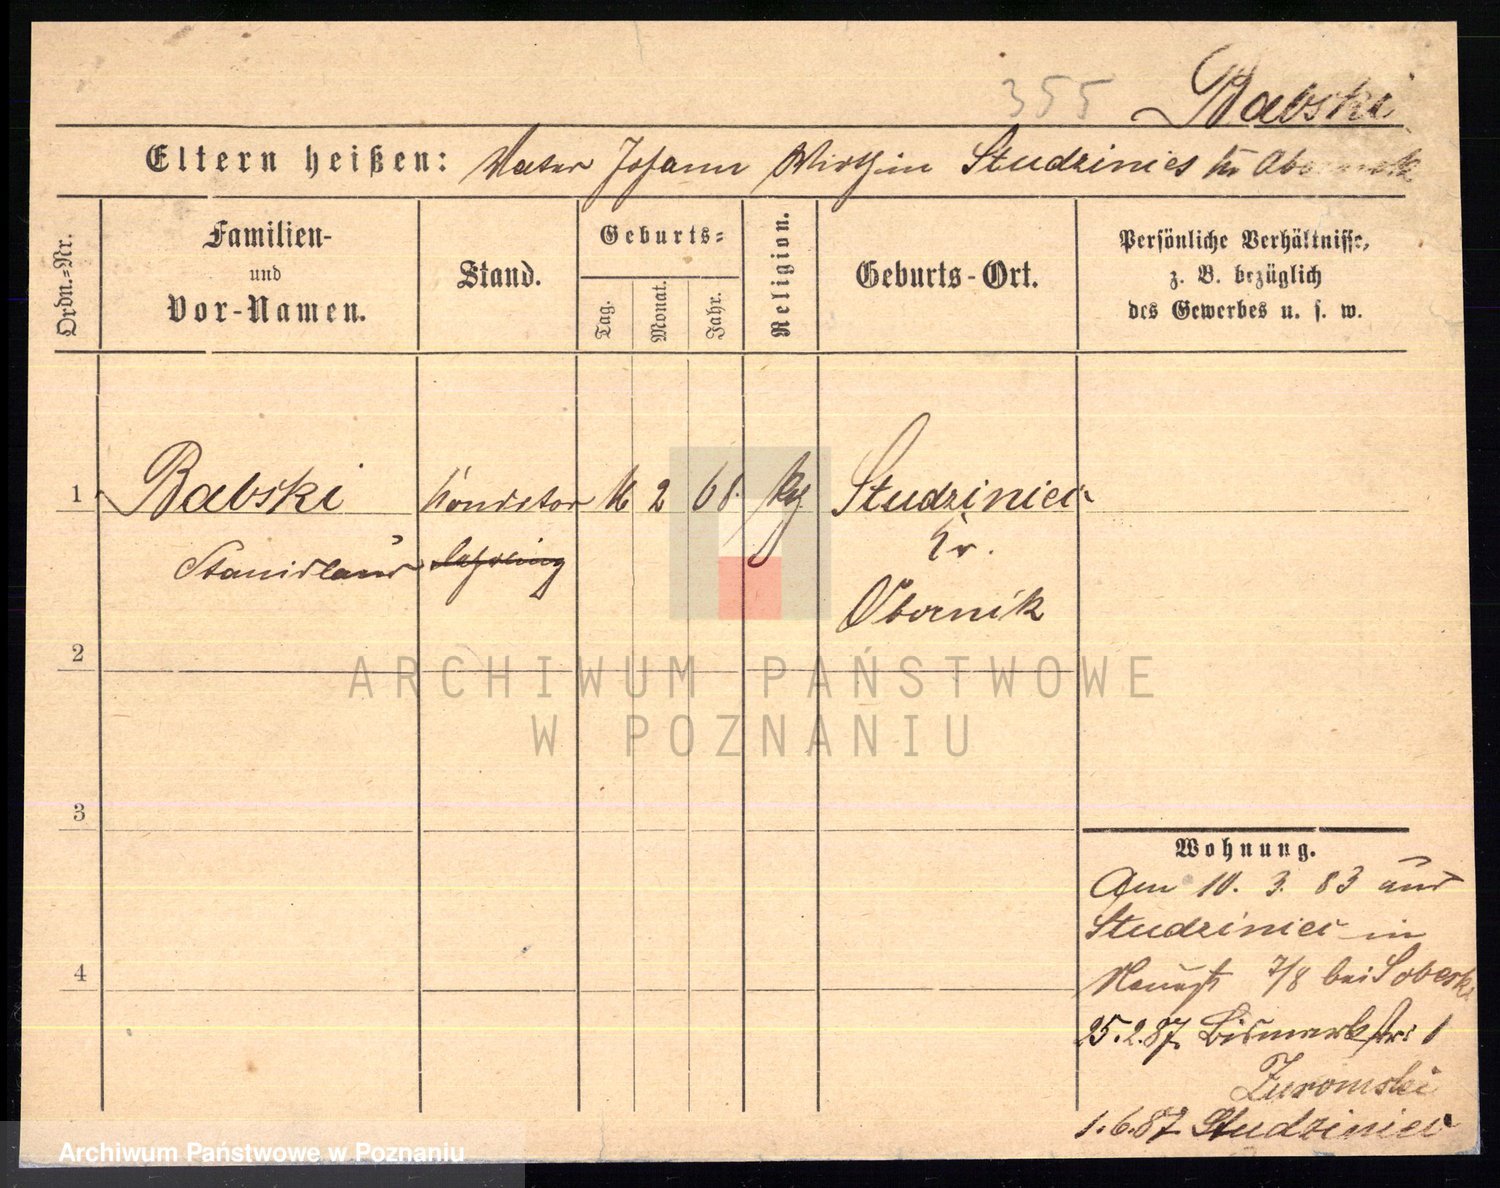 355 Babski
Eltern heißen: Vater Johann Wirth in Studziniec Kr Obornik
Ordn.-Nr.
Familien-
und
Vor-Namen.
Stand.
Geburts-
Tag.
Monat.
Jahr.
Religion.
Geburts-Ort.
Persönliche Verhältnisse,
z. B. bezüglich
des Gewerbes u. s. w.
1 Babski Konditor 2 68. Studziniec
Stanislaus lehrling Kr.
Obornik
2
3
4
ARCHIWUM PAŃSTWOWE
W POZNANIU
Wohnung.
Am 10. 3. 83 aus
Studziniec in
7/8 bei Sobeski
25.2.87. Bismarkstr 1
Zuromski
1.6.87 Studziniec
Archiwum Państwowe w Poznaniu